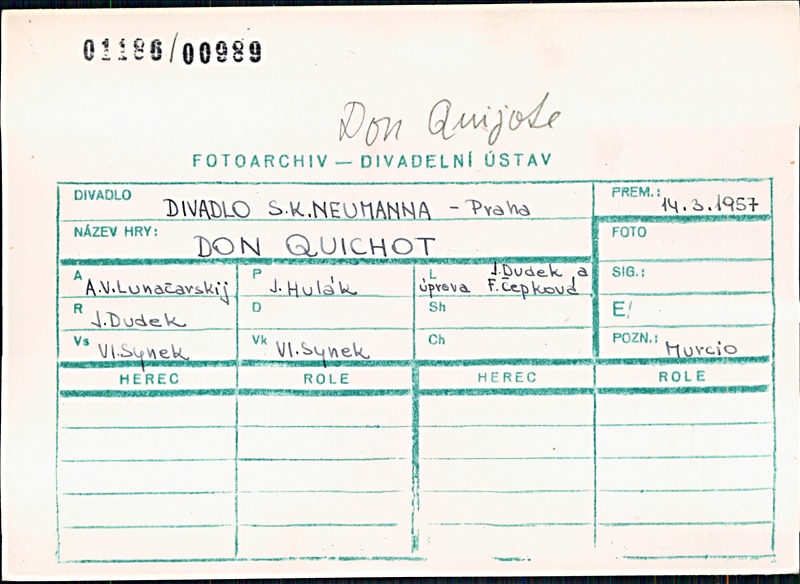 01186/00989
Don Quijote
FOTOARCHIV — DIVADELNÍ ÚSTAV
DIVADLO DIVADLO S.K.NEUMANNA - Praha
PREM.: 14.3.1957
NÁZEV HRY: DON QUICHOT
FOTO
A A.V.Lunačarskij
P J.Hulák
L J.Dudek a
úprava F.Čepková
SIG.:
R J.Dudek
D
Sh
E/
Vs Vl.Synek
Vk Vl.Synek
Ch
POZN.: Murcio
HEREC ROLE HEREC ROLE